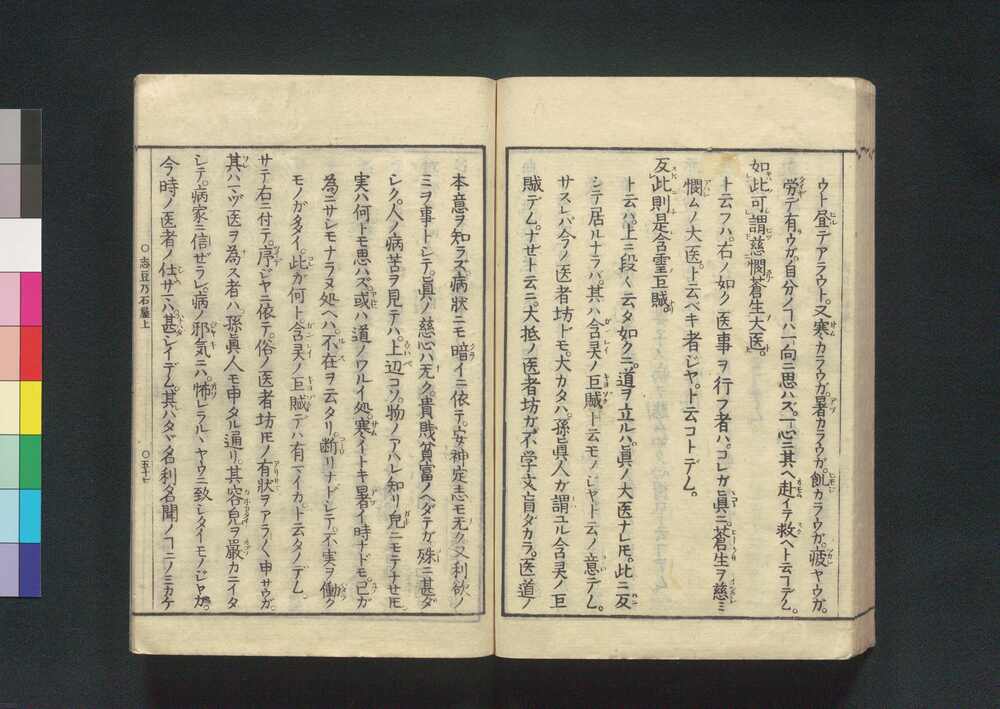 ウト昼テアラウト。又寒カラウガ。暑カラウガ。飢カラウガ。疲ヤウガ。
労デ有ウガ自分ノヿハ一向ニ思ハズ。一心ニ其へ赴イテ救ヘト云ヿデム。
如此可謂慈憫蒼生大医。
ト云フハ。右ノ如ク医事ヲ行フ者ハ。コレガ眞ニ。蒼生ヲ慈ミ
憫ムノ大医ト云ベキ者ジヤ。ト云コトデム。
反此則是含霊巨賊。
ト云ハ。上ニ段々云タ如クニ。道ヲ立ルハ。眞ノ大医ナレ𪜈。此ニ反
シテ居ルナラバ。其ハ含灵ノ巨賊ト云モノジヤト云ノ意デム。
サスレバ今ノ医者坊ドモ。大カタハ。孫眞人が謂ユル含灵ノ巨
賊デム。ナセト云ニ。大抵ノ医者坊ガ。不学文盲ダカラ。医道ノ
本意ヲ知ラズ。病狀ニモ暗イニ依テ。安神定志モ无ク。又利欲ノ
ミヲ事トシテ。眞ノ慈心ハ无ク。貴賎貧富ノヘダテガ。殊ニ甚ダ
シク。人ノ病苦ヲ見テハ。上辺コソ。物ノアハレ知リ皃ニモテナセ𪜈
実ハ何トモ思ハズ。或ハ道ノワルイ処。寒イトキ暑イ時ナドモ。己ガ
為ニサシモナラヌ処ヘハ。不在ヲ云タリ。断リナドシテ。不実ヲ働ク
モノガタダイ。此ガ何ト含灵ノ巨賊デハ有マイカト云タノデム
サテ右ニ付テ。序ジヤニ依テ。俗ノ医者坊𪜈ノ有狀ヲアラ〳〵申サウガ。
其ハマヅ医ヲ為ス者ハ。孫眞人モ申タル通リ。其容皃ヲ厳カニイタ
シテ。病家ニ信ゼラレ。病ノ邪気ニハ。怖レラルヽヤウニ致シタイモノジヤガ。
今時ノ医者ノ仕サマハ甚シイデム。其ハタヾ名利名聞ノヿニノミカケ
○志豆乃石屋上
○五十七